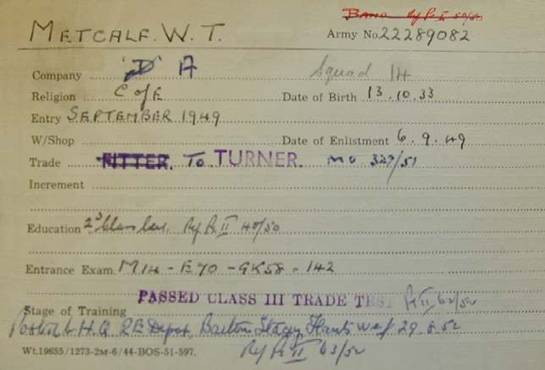 BAND Pt II 50/50
METCALF. W. T.
Army No. 22289082
Company 'D' A Squad 14
Religion C of E Date of Birth 13.10.33
Entry SEPTEMBER 1949
W/Shop Date of Enlistment 6.9.49
Trade FITTER. To TURNER. MO 327/51
Increment
Education 2nd Class Cert. Pt II 40/50
Entrance Exam. M14 - E70 - GK58 = 142
PASSED CLASS III TRADE TEST Pt II 62/52
Stage of Training
Posted to H.Q. R.E Depot, Barton Stacey Hants wef 29.8.52
Wt.19655/1273-2M-6/44-BOS-51-597. Pt II 63/52